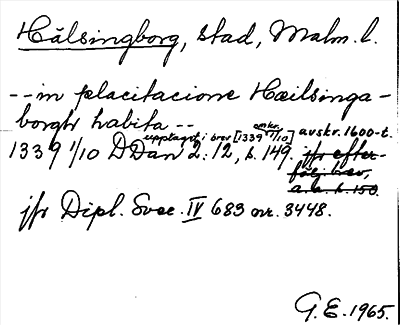 Hälsingborg, stad, Malm. l.
-- in placitacione Hæilsinga-
borghr habita --
upptaget i brev [1339 omkr. 1/10] avskr. 1600-t.
1339 1/10 DDan 2:12, s. 149. jfr efter-
följ. brev,
a.a. s. 150
jfr Dipl. Svec. IV 683 nr. 3448.
G.E. 1965.